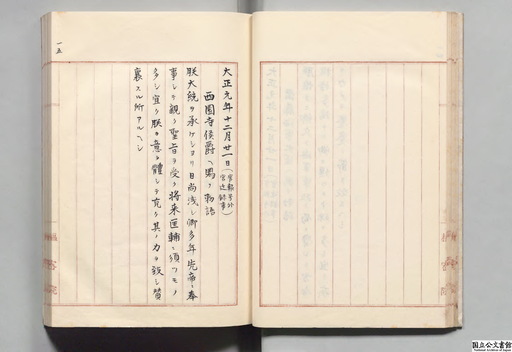 大正元年十二月廿一日(官報号外 宮廷録事)
西園寺侯爵ヘ賜フ勅語
朕大統ヲ承ケシヨリ日尚浅シ卿多年先帝ニ奉
事シテ親ク聖旨ヲ受ク将来匡輔ニ須ツモノ
多シ宜ク朕カ意ヲ體シテ克ク其ノ力ヲ致シ賛
襄スル所アルヘシ
一五
国立公文書館
National Archives of Japan